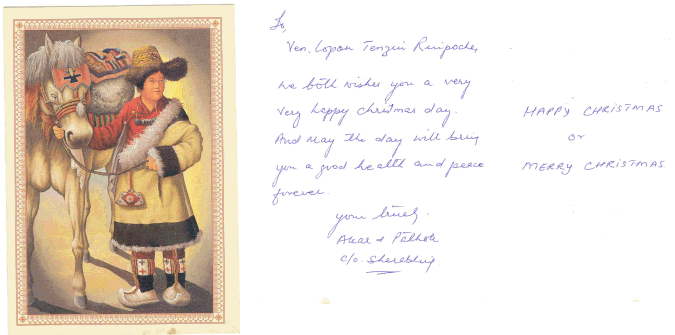 To,
Ven. Lopon Tenzin Rinpoche,
We both wishes you a very
very happy christmas day.
And may the day will bring
you a good health and peace
forever.
HAPPY CHRISTMAS
or
MERRY CHRISTMAS
your truely.
&
c/o.